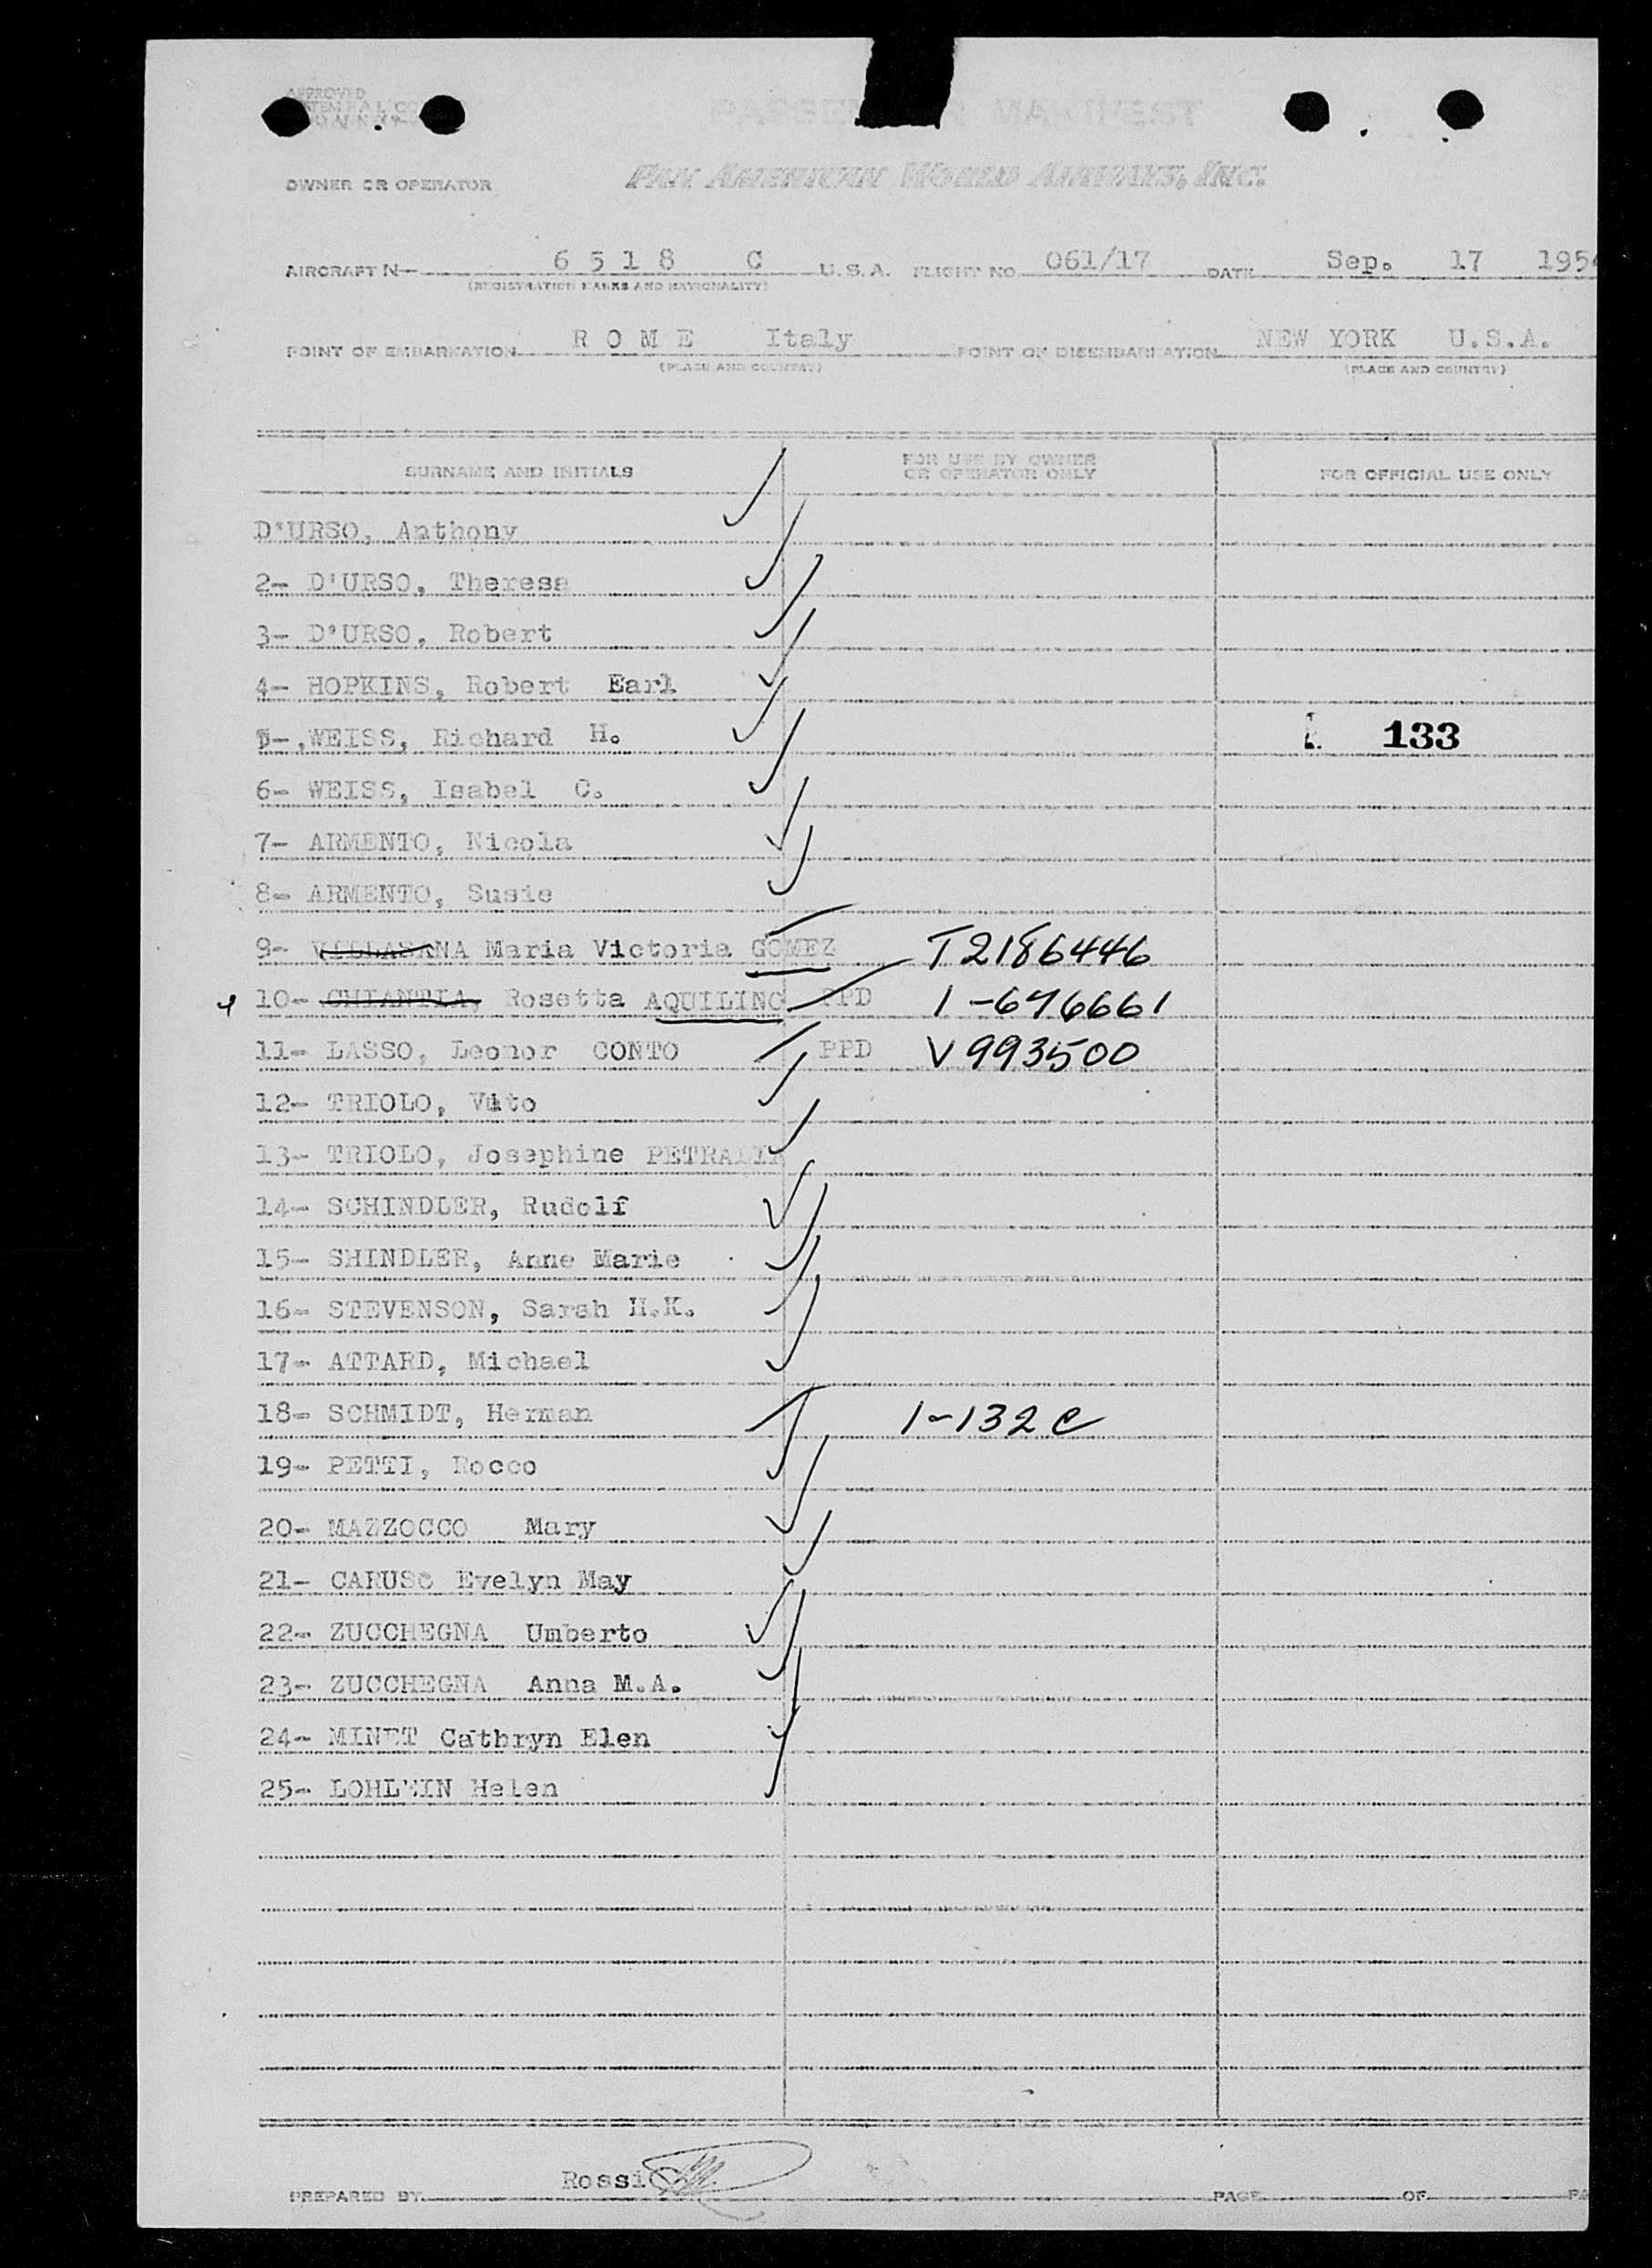 APPROVED
PASSENGER MANIFEST
OWNER OR OPERATOR PAN AMERICAN WORLD AIRWAYS, INC.
AIRCRAFT N— 6518 C U.S.A. FLIGHT NO 061/17 DATE Sep. 17 195
(REGISTRATION MARKS AND NATIONALITY)
POINT OF EMBARKATION R O M E Italy POINT OF DISEMBARKATION NEW YORK U.S.A.
(PLACE AND COUNTRY) (PLACE AND COUNTRY)
SURNAME AND INITIALS FOR USE BY OWNER OR OPERATOR ONLY FOR OFFICIAL USE ONLY
D'URSO, Anthony
2- D'URSO, Theresa
3- D'URSO, Robert
4- HOPKINS, Robert Earl
5- ,WEISS, Richard H. 133
6- WEISS, Isabel C.
7- ARMENTO, Nicola
8- ARMENTO, Susie
9- VILLASANA Maria Victoria GOMEZ T2186446
10- CHIANTIA, Rosetta AQUILINO PPD 1-676661
11- LASSO, Leonor CONTO PPD V993500
12- TRIOLO, Vito
13- TRIOLO, Josephine PETRALIA
14- SCHINDLER, Rudolf
15- SHINDLER, Anne Marie
16- STEVENSON, Sarah H.K.
17- ATTARD, Michael
18- SCHMIDT, Herman 1-132 C
19- PETTI, Rocco
20- MAZZOCCO Mary
21- CARUSO Evelyn May
22- ZUCCHEGNA Umberto
23- ZUCCHEGNA Anna M.A.
24- MINET Cathryn Elen
25- LOHLEIN Helen
PREPARED BY Rossi PAGE OF PA